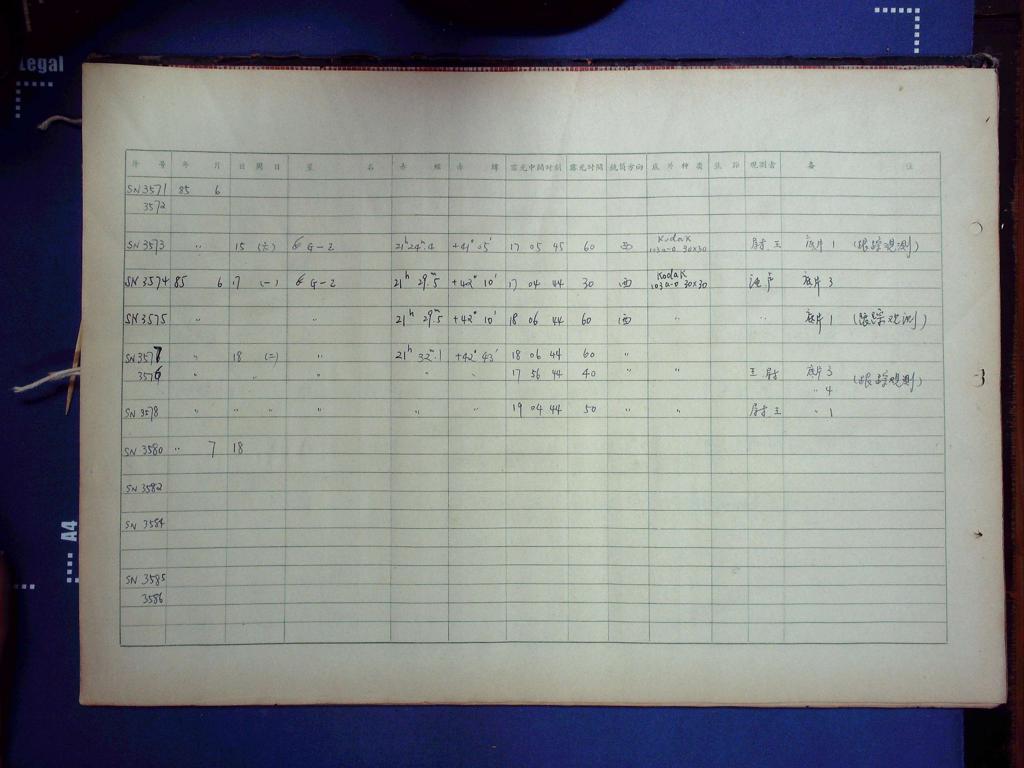 Legal
序 号 年 月 日 周 日 星 名 赤 经 赤 纬 露光中间时刻 露光时间 镜筒方向 底 片 种 类 焦 距 观测者 备 注
SN 3571 85 6
3572
SN 3573 〃 15 (六) G-Z 21h 24m.4 +41° 05′ 17 05 45 60 西 Kodak 103a-O 30×30 尉 王 底片 1 (跟踪观测)
SN 3574 85 6 17 (一) G-Z 21h 29m.5 +42° 10′ 17 04 44 30 西 Kodak 103a-O 30×30 底片 3
SN 3575 〃 〃 21h 29m.5 +42° 10′ 18 06 44 60 西 〃 〃 底片 1 (跟踪观测)
SN 3577 〃 18 (二) 〃 21h 32m.1 +42° 43′ 18 06 44 60 〃
3576 〃 〃 〃 〃 〃 17 56 44 40 〃 〃 王 尉 底片 3 (跟踪观测)
〃 4
SN 3578 〃 〃 〃 〃 〃 〃 19 04 44 50 〃 〃 尉 王 〃 1
SN 3580 〃 7 18
SN 3582
SN 3584
SN 3585
3586
A4